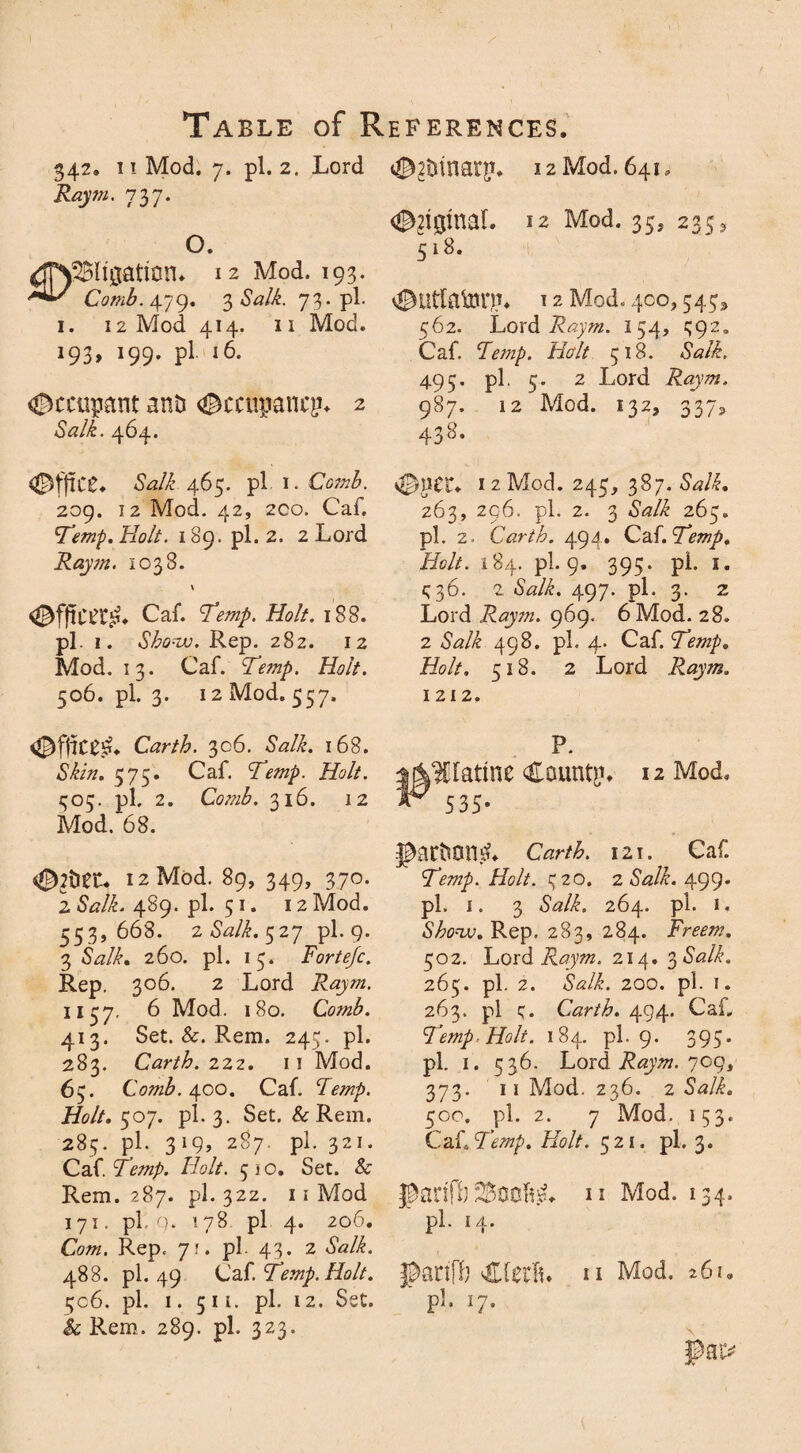 TABLE of REFERENCES.
342. 11 Mod. 7. pl. 2. Lord
Raym. 737.
O.
OBligation. 12 Mod. 193.
Comb. 479. 3 Salk. 73. pl.
1. 12 Mod 414. 11 Mod.
193, 199. pl. 16.
Occupant and Occupancy. 2
Salk. 464.
Office. Salk. 465. pl. 1. Comb.
209. 12 Mod. 42, 200. Caſ.
Temp. Holt. 189. pl. 2. 2 Lord
Raym. 1038.
Officers. Caſ. Temp. Holt. 188.
pl. 1. Show. Rep. 282. 12
Mod. 13. Caſ. Temp. Holt.
506. pl. 3. 12 Mod. 557.
Offices. Carth. 306. Salk. 168.
Skin. 575. Caſ. Temp. Holt.
505. pl. 2. Comb. 316. 12
Mod. 68.
Order. 12 Mod. 89, 349, 370.
2 Salk. 489. pl. 51. 12 Mod.
553, 668. 2 Salk. 527 pl. 9.
3 Salk. 260. pl. 15. Forteſc.
Rep. 306. 2 Lord Raym.
1157. 6 Mod. 180. Comb.
413. Set. &. Rem. 245. pl.
283. Carth. 222. 11 Mod.
65. Comb. 400. Caſ. Temp.
Holt. 507. pl. 3. Set. & Rem.
285. pl. 319, 287. pl. 321.
Caſ. Temp. Holt. 510. Set. &
Rem. 287. pl. 322. 11 Mod
171. pl. 9. 178. pl 4. 206.
Com. Rep. 71. pl. 43. 2 Salk.
488. pl. 49 Caſ. Temp. Holt.
506. pl. 1. 511. pl. 12. Set.
& Rem. 289. pl. 323.
Ordinary. 12 Mod. 641.
Original. 12 Mod. 35, 235,
518.
Outlawry. 12 Mod. 400, 545,
562. Lord Raym. 154, 592.
Caſ. Temp. Holt 518. Salk.
495. pl. 5. 2 Lord Raym.
987. 12 Mod. 132, 337,
438.
Oyer. 12 Mod. 245, 387. Salk.
263, 296. pl. 2. 3 Salk 265.
pl. 2. Carth. 494. Caſ. Temp.
Holt. 184. pl. 9. 395. pl. 1.
536. 2 Salk. 497. pl. 3. 2
Lord Raym. 969. 6 Mod. 28.
2 Salk 498. pl. 4. Caſ. Temp.
Holt. 518. 2 Lord Raym.
1212.
P.
PAlatine County. 12 Mod.
535.
Pardons. Carth. 121. Caſ.
Temp. Holt. 520. 2 Salk. 499.
pl. 1. 3 Salk. 264. pl. 1.
Show. Rep. 283, 284. Freem.
502. Lord Raym. 214. 3 Salk.
265. pl. 2. Salk. 200. pl. 1.
263. pl 5. Carth. 494. Caſ.
Temp. Holt. 184. pl. 9. 395.
pl. 1. 536. Lord Raym. 709,
373. 11 Mod. 236. 2 Salk.
500. pl. 2. 7 Mod. 153.
Caſ. Temp. Holt. 521. pl. 3.
Pariſh Books. 11 Mod. 134.
pl. 14.
Pariſh Clerk. 11 Mod. 261.
pl. 17.
Par-